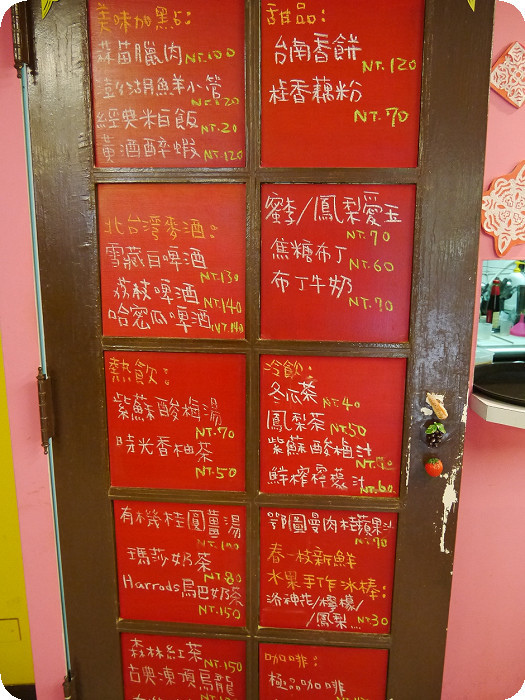 美味加點：
蒜苗臘肉 NT.100
澎湖鮮羊小管
NT.220
經典米白飯 NT.20
黃酒醉蝦 NT.120
甜品：
台南香餅
NT.120
桂香藕粉
NT.70
北台灣麥酒：
雪藏白啤酒
NT.130
荔枝啤酒
NT.140
哈密瓜啤酒 NT.140
蜜李/鳳梨愛玉
NT.70
焦糖布丁
NT.60
布丁牛奶
NT.90
熱飲：
紫蘇酸梅湯
NT.70
時光香柚茶
NT.50
冷飲：
冬瓜茶
NT.40
鳳梨茶
NT.50
紫蘇酸梅汁
鮮榨檸檬汁
NT.60
有機桂圓薑湯
NT.100
瑪莎奶茶
NT.80
Harrods烏巴奶茶
NT.150
鄂圖曼肉桂蘋果汁
NT.90
春一枝新鮮
水果手作冰棒：
洛神花/檸檬/
/鳳梨 NT30
森林紅茶
NT.150
古典凍頂烏龍
咖啡：
極品咖啡